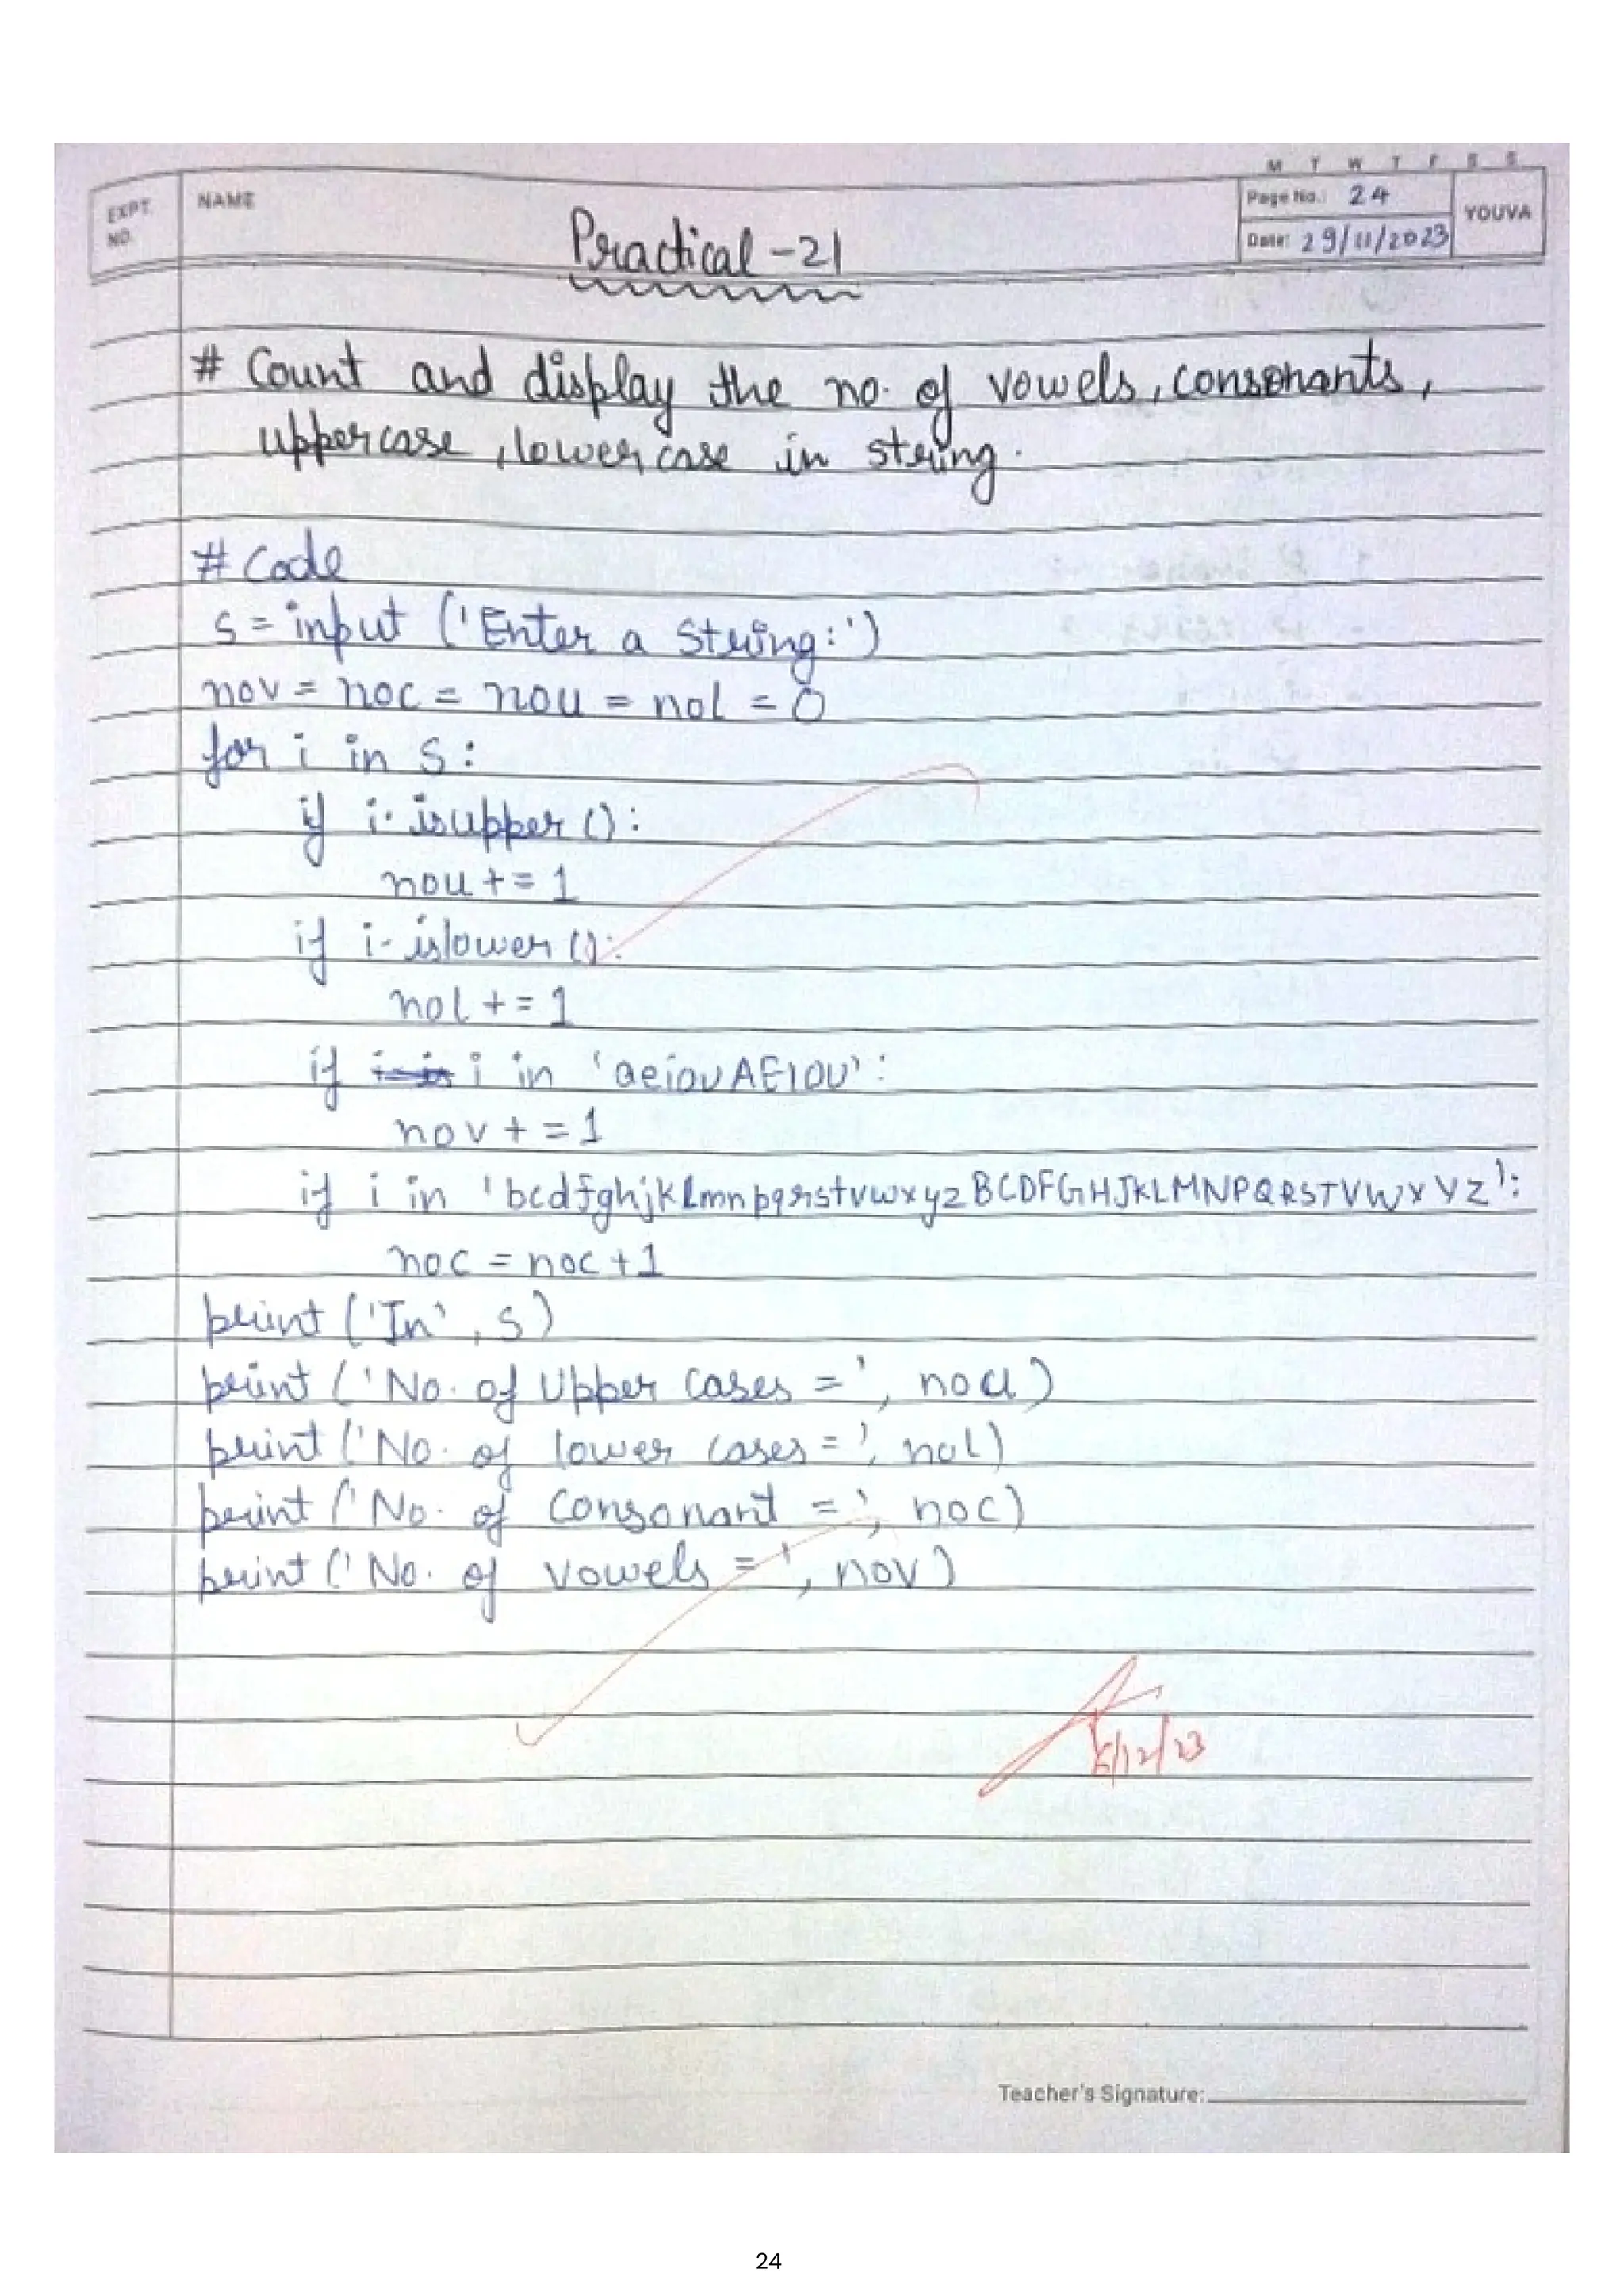 M T W T F S S
EXPT. NO.
NAME
Page No.: 24
Date: 29/11/2023
YOUVA
Practical -21
# Count and display the no. of vowels, consonants,
uppercase, lowercase in string.
# Code
s = input ('Enter a String:')
nov = noc = nou = nol = 0
for i in s:
if i.isupper():
nou += 1
if i.islower():
nol += 1
if i in 'aeiouAEIOU':
nov += 1
if i in 'bcdfghjklmnpqrstvwxyzBCDFGHJKLMNPQRSTVWXYZ':
noc = noc + 1
print ('In', s)
print ('No. of Upper Cases =', nou)
print ('No. of lower cases =', nol)
print ('No. of Consonant =', noc)
print ('No. of vowels =', nov)
/12/23
Teacher's Signature:
24